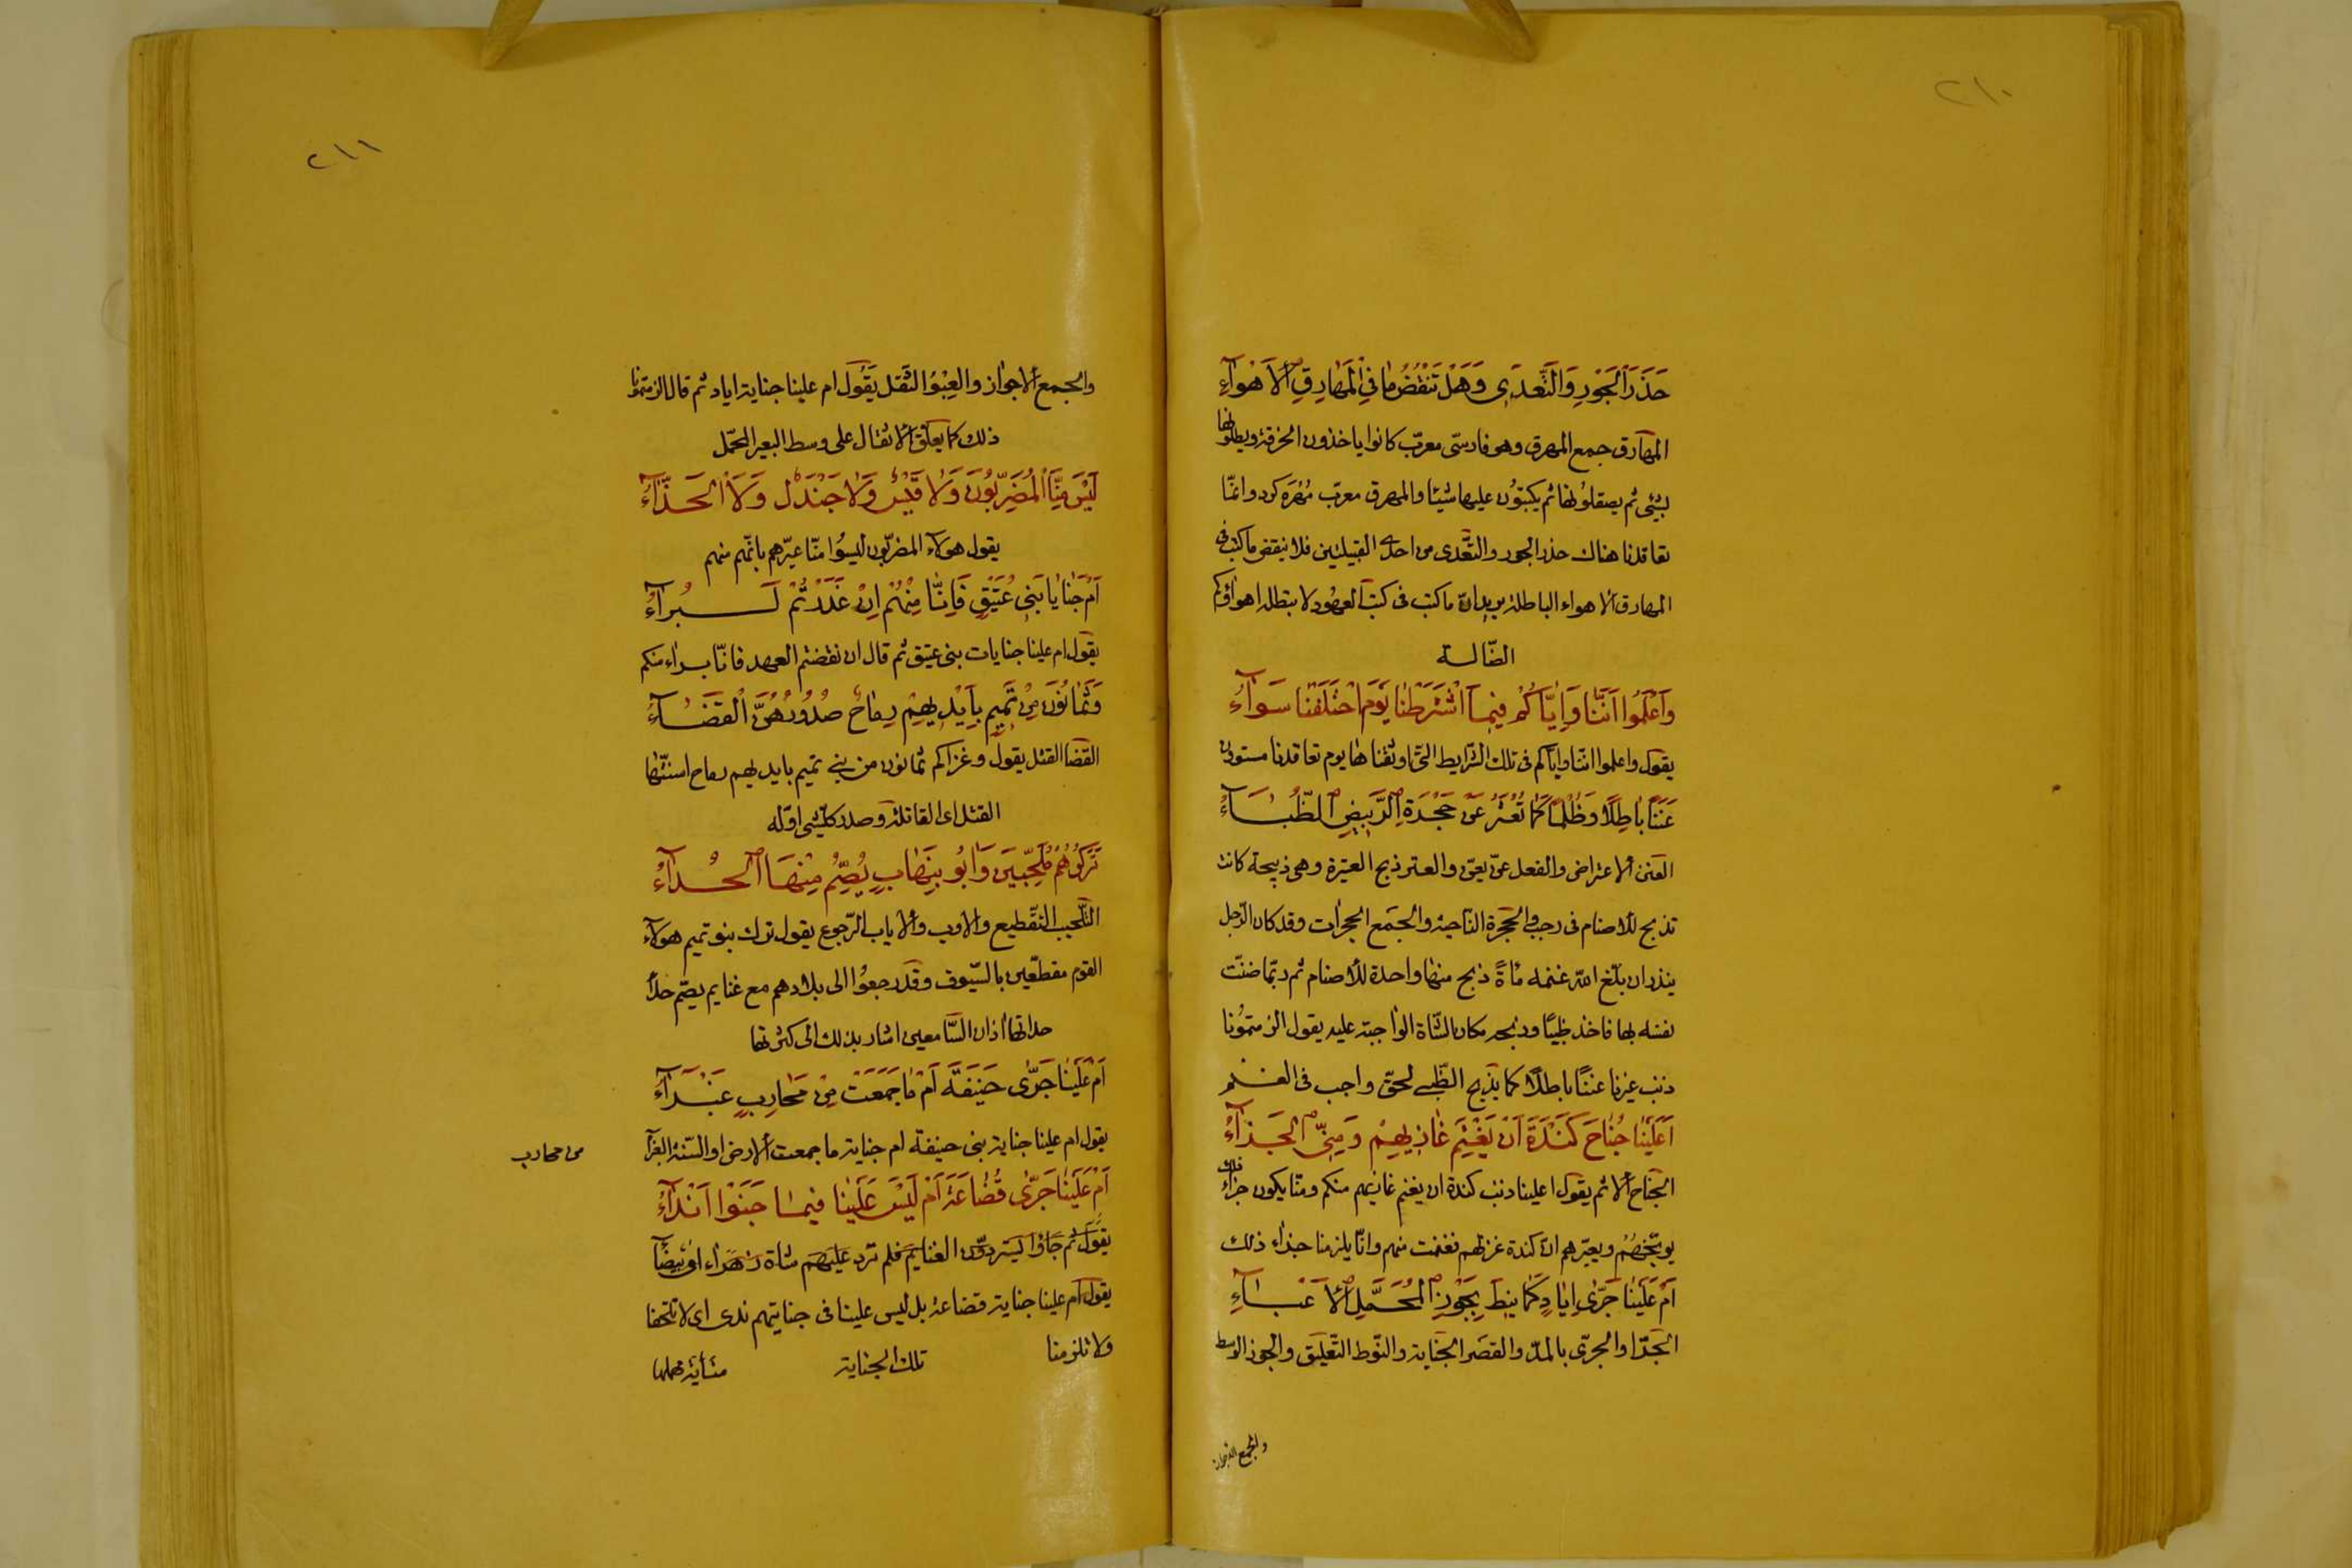 ٢١٠
حَذَرَ الْجَوْرِ وَالتَّعَدِّى وَهَلْ تَنْقُضُ مَا فِى الْمَهَارِقِ الْأَهْوَآءُ
المهارق جمع المهرق وهو فارسىّ معرّب كانوا ياخذون الخرقة ويطلونها
بشئ ثم يصقلونها ثم يكتبون عليها شيئا والمهرق معرّب مُهْرَه كرد وانّما
تعاقدنا هناك حذر الجور والتّعدى من احدى القبيلتين فلا ينقض ما كتب فى
المهارق الاهواء الباطلة يريد انّ ما كتب فى كتب العهود لا يبطله اهواؤكم
الضّالة
وَاعْلَمُوا اَنَّنَا وَاِيَّاكُمْ فِيمَا اشْتَرَطْنَا يَوْمَ احْتَلَفْنَا سَوَآءُ
يقول واعلموا اننا واياكم فى تلك الشرايط التى اوثقنا ها يوم تعاقدنا مستوون
عَنَنًا بَاطِلًا وَظُلْمًا كَمَا تُعْتَرُ عَنْ حَجْرَةِ الرَّبِيضِ الظِّبَآءُ
العنن الاعتراض والفعل عنّ يعنّ والعتر ذبح العتيرة وهى ذبيحة كانت
تذبح للأصنام فى رجب والحجرة النّاحية والجمع الحجرات وقد كان الرّجل
ينذر ان بلّغ الله غنمه مأةً ذبح منها واحدة للأصنام ثم ربّما ضنّت
نفسه بها فاخذ ظبيًا وذبحه مكان الشّاة الواجبة عليه يقول الزمتمونا
ذنب غيرنا عننًا باطلًا كما يذبح الظّبى لحقّ واجب فى الغنم
اَعَلَيْنَا جُنَاحُ كَنْدَةَ اَنْ يَغْنَمَ غَازِيهِمْ وَمِنَّا الْجَزَآءُ
الجناح الاثم يقول اعلينا ذنب كندة ان يغنم غازيهم منكم ومنّا يكون جزاء ذلك
يوبّخهُمْ ويعيّرهم انّ كندة غزتهم فغنمت منهم وانّا يلزمنا جزاء ذلك
اَمْ عَلَيْنَا جَرَّى اِيَادٍ كَمَا نِيطَ بِجَوْزِ الْمُحَمَّلِ الْأَعْبَآءُ
الجَرّا والجرّى بالمدّ والقصَر الجناية والنّوط التّعليق والجوز الوسط
والجمع الاجواز
٢١١
والجمع الاجواز والعِبْوُ الثقل يَقُول ام علينا جناية اياد ثم قال الزمتمونا
ذلك كما يعلّق الاثقال على وسط البعير المحمّل
لَيْسَ مِنَّا الْمُضَرَّبُونَ وَلَا قَيْسٌ وَلَا جَنْدَلٌ وَلَا الْحَذَّآءُ
يقول هولآء المضرّبون ليسُوا منّا عيّرهم بانّهم منهم
اَمْ جَنَايَا بَنِى عُتَيْقٍ فَاِنَّا مِنْهُمْ اِنْ غَدَرْتُمْ لَبُرَآءُ
يقول ام علينا جنايات بنى عتيق ثم قال ان نقضتم العهد فانّا براء منكم
وَثَمَانُونَ مِنْ تَمِيمٍ بِاَيْدِيهِمْ رِمَاحٌ صُدُورُهُنَّ الْقَضَآءُ
القضا القتل يقول وغزاكم ثمانون من بنى تميم بايديهم رماح اسنّتها
القتل اى القاتلة وصدر كلّ شى اوّله
تَرَكُوهُمْ مُلَحَّبِينَ وَاٰبُوا بِنِهَابٍ يُصِمُّ مِنْهَا الْحُدَآءُ
التّلحيب التّقطيع والاوب والاياب الرّجوع يقول ترك بنو تميم هولآء
القوم مقطّعين بالسّيوف وقد رجعوا الى بلادهم مع غنايم يصمّ حداء
حداتها اذان السّامعين اشار بذلك الى كثرتها
اَمْ عَلَيْنَا جَرَّى حَنِيفَةَ اَمْ مَا جَمَعَتْ مِنْ مَحَارِبٍ غَبْرَآءُ
يقول ام علينا جناية بنى حنيفة ام جناية ما جمعت الارض او السّنة الغبرآ
من محارب
اَمْ عَلَيْنَا جَرَّى قُضَاعَةَ اَمْ لَيْسَ عَلَيْنَا فِيمَا جَنَوْا اَنْدَآءُ
يقول ثم جَاؤا يستردّون الغنايم فلم ترد عليهم شاة زهراء اى بيضآ
يقول ام علينا جناية قضاعة بل ليس علينا فى جنايتهم ندى اى لا تلحقنا
ولا تلزمنا تلك الجناية